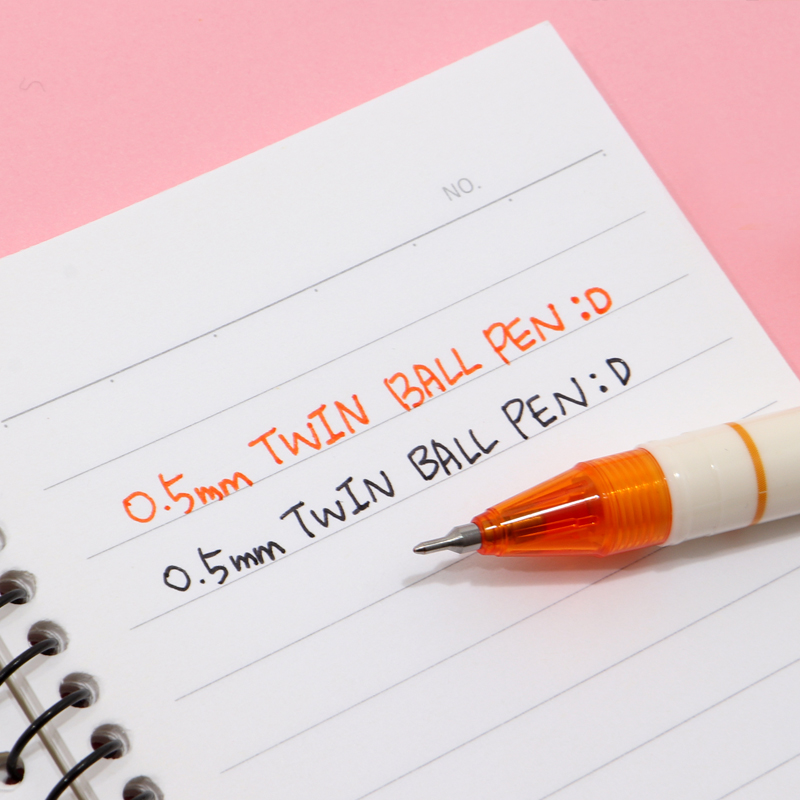 NO.
0.5mm TWIN BALL PEN :D
0.5mm TWIN BALL PEN :D